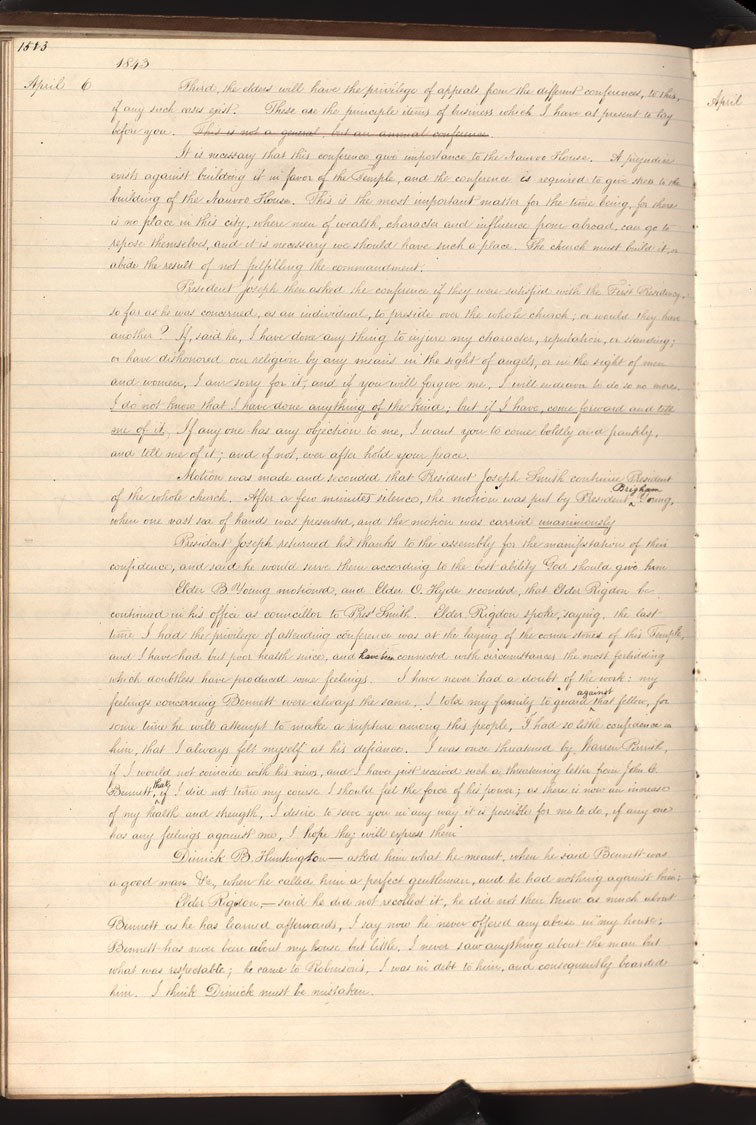 1513
1843
April 6 Third, the elders will have the privilege of appeals from the different conferences, to this,
if any such cases exist. These are the principle items of business which I have at present to lay
before you. This is not a general, but an annual conference.
It is necessary that this conference give importance to the Nauvoo House. A prejudice
exists against building it in favor of the Temple, and the conference is required to give stress to the
building of the Nauvoo House. This is the most important matter for the time being, for there
is no place in this city, where men of wealth, character and influence from abroad, can go to
repose themselves, and it is necessary we should have such a place. The church must build it, or
abide the result of not fulfilling the commandment.
President Joseph then asked the conference if they were satisfied with the First Presidency,
so far as he was concerned, as an individual, to preside over the whole church; or would they have
another? If, said he, I have done any thing to injure my character, reputation, or standing;
or have dishonored our religion by any means in the sight of angels, or in the sight of men
and women, I am sorry for it, and if you will forgive me, I will endeavor to do so no more.
I do not know that I have done anything of the kind; but if I have, come forward and tell
me of it. If any one has any objection to me, I want you to come boldly and frankly,
and tell me of it; and if not, ever after hold your peace.
Motion was made and seconded that President Joseph Smith continue President
of the whole church. After a few minutes silence, the motion was put by President Brigham Young,
when one vast sea of hands was presented, and the motion was carried unanimously
President Joseph returned his thanks to the assembly for the manifestation of their
confidence, and said he would serve them according to the best ability God should give him
Elder B. Young motioned, and Elder O. Hyde seconded, that Elder Rigdon be
continued in his office as councillor to Prest. Smith. Elder Rigdon spoke, saying, the last
time I had the privilege of attending conference was at the laying of the corner stones of this Temple,
and I have had but poor health since, and have been connected with circumstances the most forbidding
which doubtless have produced some feelings. I have never had a doubt of the work: my
feelings concerning Bennett were always the same, I told my family to guard against that fellow, for
some time he will attempt to make a rupture among this people, I had so little confidence in
him, that I always felt myself at his defiance. I was once threatened by Warren Parrish,
if I would not coincide with his views, and I have just received such a threatening letter from John C.
Bennett, that, if I did not turn my course I should feel the force of his power; as there is now an increase
of my health and strength, I desire to serve you in any way it is possible for me to do, if any one
has any feelings against me, I hope they will express them.
Dimick B. Huntington — asked him what he meant, when he said Bennett was
a good man &c, when he called him a perfect gentleman, and he had nothing against him;
Elder Rigdon, — said he did not recollect it, he did not then know as much about
Bennett as he has learned afterwards, I say now he never offered any abuse in my house;
Bennett has never been about my house but little, I never saw anything about the man but
what was respectable; he came to Robinson's, I was in debt to him, and consequently boarded
him. I think Dimick must be mistaken.
April